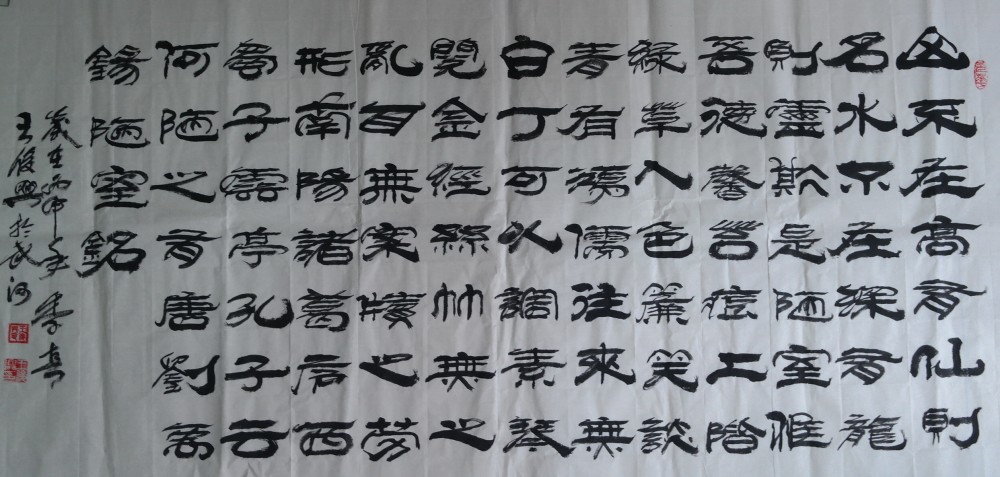 山不在高有仙則
名水不在深有龍
則靈斯是陋室惟
吾德馨苔痕上階
綠草入色簾笑談
青有鴻儒往來無
白丁可以調素琴
閱金經絲竹無之
亂耳無案牘之勞
形南陽諸葛廬西
蜀子雲亭孔子云
何陋之有唐劉禹
錫陋室銘
歲在丙申年季春
王俊興於武河